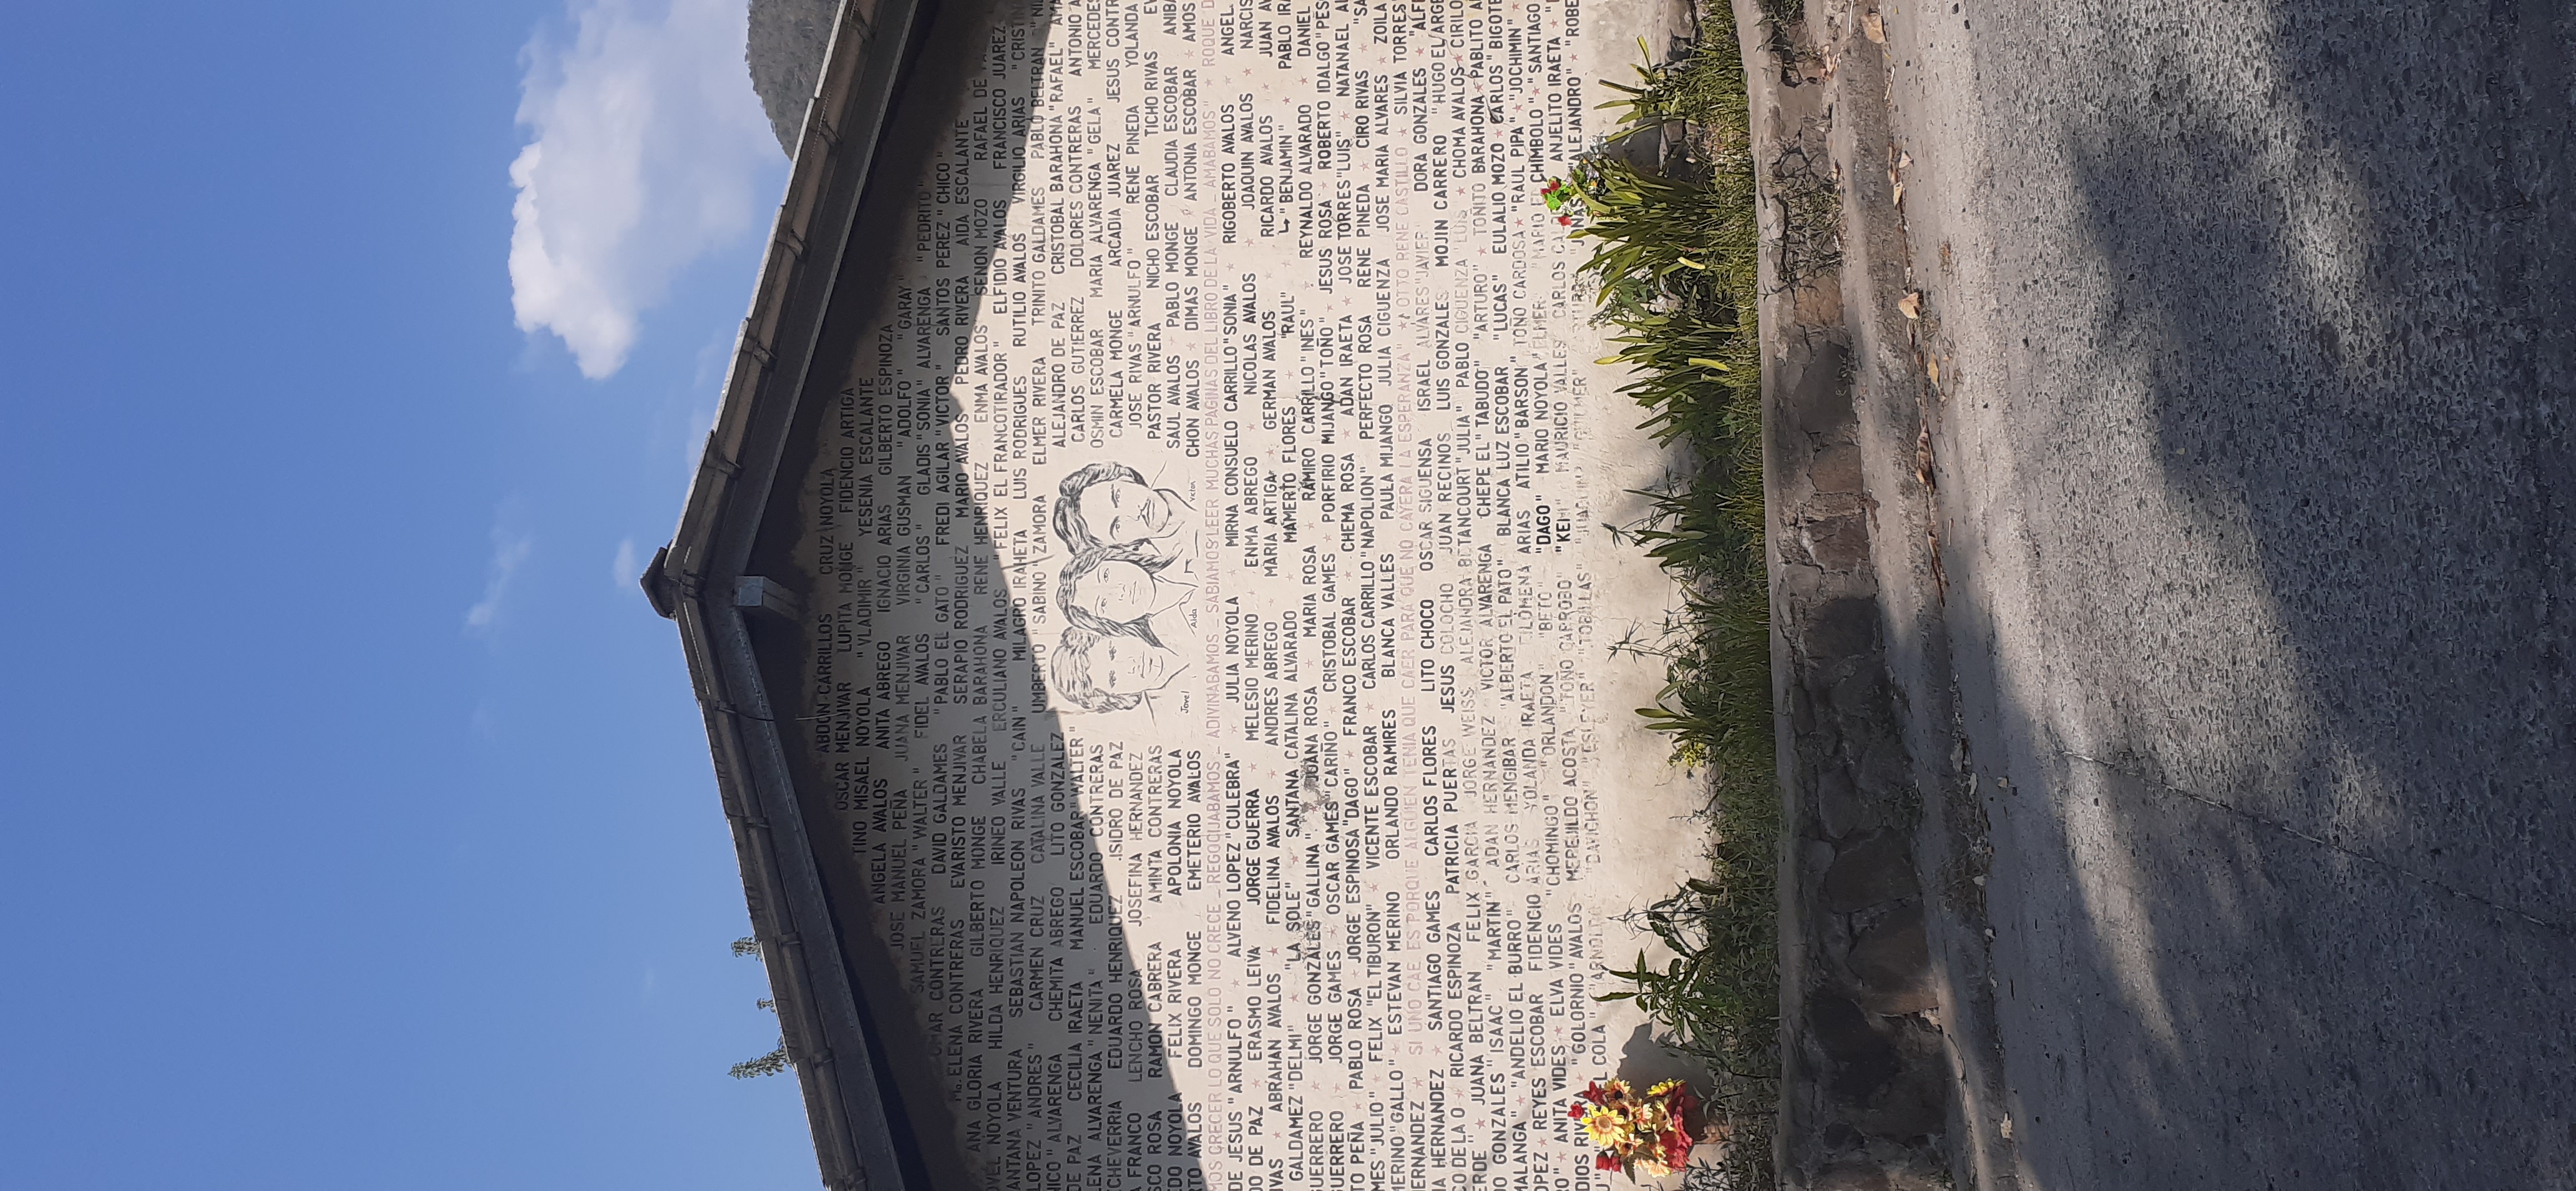 ABDON CARRILLOS CRUZ NOYOLA
OSCAR MENJIVAR LUPITA MONGE FIDENCIO ARTIGA
TINO MISAEL NOYOLA "VLADIMIR" YESENIA ESCALANTE
ANGELA AVALOS ANITA ABREGO IGNACIO ARIAS GILBERTO ESPINOZA
JOSE MANUEL PEÑA JUANA MENJIVAR VIRGINIA GUSMAN "ADOLFO" "GARAY"
SAMUEL ZAMORA "WALTER" FIDEL AVALOS "CARLOS" GLADIS "SONIA" ALVARENGA "PEDRITO"
OMAR CONTRERAS DAVID GALDAMES "PABLO EL GATO" FREDI AGILAR "VICTOR" SANTOS PEREZ "CHICO"
Ma. ELENA CONTRERAS EVARISTO MENJIVAR SERAPIO RODRIGUEZ MARIO AVALOS PEDRO RIVERA AIDA ESCALANTE
ANA GLORIA RIVERA GILBERTO MONGE CHABELA BARAHONA RENE HENRIQUEZ ENMA AVALOS SENON MOZO RAFAEL DE
OVEL NOYOLA HILDA HENRIQUEZ IRINEO VALLE ERCULIANO AVALOS "FELIX EL FRANCOTIRADOR" ELFIDIO AVALOS FRANCISCO JUAREZ
ANTANA VENTURA SEBASTIAN NAPOLEON RIVAS "CAIN" MILAGRO IRAHETA LUIS RODRIGUES RUTILIO AVALOS VIRGILIO ARIAS "CRISTIN
LOPEZ "ANDRES" CARMEN CRUZ CATALINA VALLE UMBERTO "SABINO" ZAMORA ELMER RIVERA TRINITO GALDAMES PABLO BELTRAN
NICO" ALVARENGA CHEMITA ABREGO LITO GONZALEZ ALEJANDRO DE PAZ CRISTOBAL BARAHONA "RAFAEL" AMA
DE PAZ CECILIA IRAETA MANUEL ESCOBAR "WALTER" CARLOS GUTIERREZ DOLORES CONTRERAS ANTONIO A
LENA ALVARENGA "NENITA" EDUARDO CONTRERAS OSMIN ESCOBAR MARIA ALVARENGA "GELA" MERCEDES
ECHEVERRIA EDUARDO HENRIQUEZ ISIDRO DE PAZ CARMELA MONGE ARCADIA JUAREZ JESUS CONTR
A FRANCO LENCHO ROSA JOSEFINA HERNANDEZ JOSE RIVAS "ARNULFO" RENE PINEDA YOLANDA
SCO ROSA RAMON CABRERA AMINTA CONTRERAS PASTOR RIVERA NICHO ESCOBAR TICHO RIVAS EV
EDO NOYOLA FELIX RIVERA APOLONIA NOYOLA SAUL AVALOS PABLO MONGE CLAUDIA ESCOBAR ANIBA
RTO AVALOS DOMINGO MONGE EMETERIO AVALOS CHON AVALOS DIMAS MONGE ANTONIA ESCOBAR AMOS
Jovel Aida Victor
MOS CRECER LO QUE SOLO NO CRECE _ REGOCIJABAMOS _ ADIVINABAMOS _ SABIAMOS LEER MUCHAS PAGINAS DEL LIBRO DE LA VIDA _ AMABAMOS" ROQUE D
DE JESUS "ARNULFO" ALVENO LOPEZ "CULEBRA" JULIA NOYOLA MIRNA CONSUELO CARRILLO "SONIA" RIGOBERTO AVALOS ANGEL
DO DE PAZ ERASMO LEIVA JORGE GUERRA MELESIO MERINO ENMA ABREGO NICOLAS AVALOS JOAQUIN AVALOS NARCIS
IVAS ABRAHAN AVALOS FIDELINA AVALOS ANDRES ABREGO MARIA ARTIGA GERMAN AVALOS RICARDO AVALOS JUAN AV
GALDAMEZ "DELMI" "LA SOLE" SANTANA CATALINA ALVARADO MAMERTO FLORES "RAUL" ↳ "BENJAMIN" PABLO IRA
GUERRERO JORGE GONZALES "GALLINA" JOANA ROSA MARIA ROSA RAMIRO CARRILLO "INES" REYNALDO ALVARADO DANIEL
GUERRERO JORGE GAMES OSCAR GAMES "CARIÑO" CRISTOBAL GAMES PORFIRIO MIJANGO "TOÑO" JESUS ROSA ROBERTO IDALGO "PES
TO PEÑA PABLO ROSA JORGE ESPINOSA "DAGO" FRANCO ESCOBAR CHEMA ROSA ADAN IRAETA JOSE TORRES "LUIS" NATANAEL AL
MES "JULIO" FELIX "EL TIBURON" VICENTE ESCOBAR CARLOS CARRILLO "NAPOLION" PERFECTO ROSA RENE PINEDA CIRO RIVAS "SA
MERINO "GALLO" ESTEVAN MERINO ORLANDO RAMIRES BLANCA VALLES PAULA MIJANGO JULIA CIGUENZA JOSE MARIA ALVARES ZOILA
HERNANDEZ SI UNO CAE ES PORQUE ALGUIEN TENIA QUE CAER PARA QUE NO CAYERA LA ESPERANZA" OTTO RENE CASTILLO SILVIA TORRES
IA HERNANDEZ SANTIAGO GAMES CARLOS FLORES LITO CHOCO OSCAR SIGUENSA ISRAEL ALVARES "JAVIER" DORA GONZALES "ALFI
CO DE LA O RICARDO ESPINOZA PATRICIA PUERTAS JESUS COLOCHO JUAN RECINOS LUIS GONZALES MOJIN CARRERO "HUGO EL ARGE
ERDE" JUANA BELTRAN FELIX GARCIA JORGE WEISS ALEJANDRA BETANCOURT "JULIA" PABLO CIGUENZA "LUIS CHOMA AVALOS CIRILO
DO GONZALES "ISAAC" "MARTIN" ADAN HERNANDEZ VICTOR ALVARENGA CHEPE EL "TABUDO" "ARTURO" TOÑITO BARAHONA PABLITO A
MALANGA" "ANDELIO EL BURRO" CARLOS MENGIBAR "ALBERTO EL PATO" BLANCA LUZ ESCOBAR "LUCAS" EULALIO MOZO CARLOS "BIGOTE
OPEZ REYES ESCOBAR FIDENCIO ARIAS YOLANDA IRAETA FILOMENA ARIAS ATILIO "BARSON" TOÑO CARDOSA "RAUL PIPA" "JOCHIMIN"
RO" ANITA VIDES ELVA VIDES "CHOMINGO" "ORLANDON" "BETO" "DAGO" MARIO NOYOLA "ELMER" "MARIO EL CHIMBOLO" "SANTIAGO
DIOS RIVERA "GOLORNIO" AVALOS MEREJILDO ACOSTA "TOÑO GARROBO" "KEMI" MAURICIO VALLES CARLOS ANJELITO IRAETA
EL COLA "ARNOLDO "DAVICHON" "ESLEYER" "TOBILLAS" "JOAQUIN" "GUILMER" "JONAS "ALEJANDRO" "ROBE